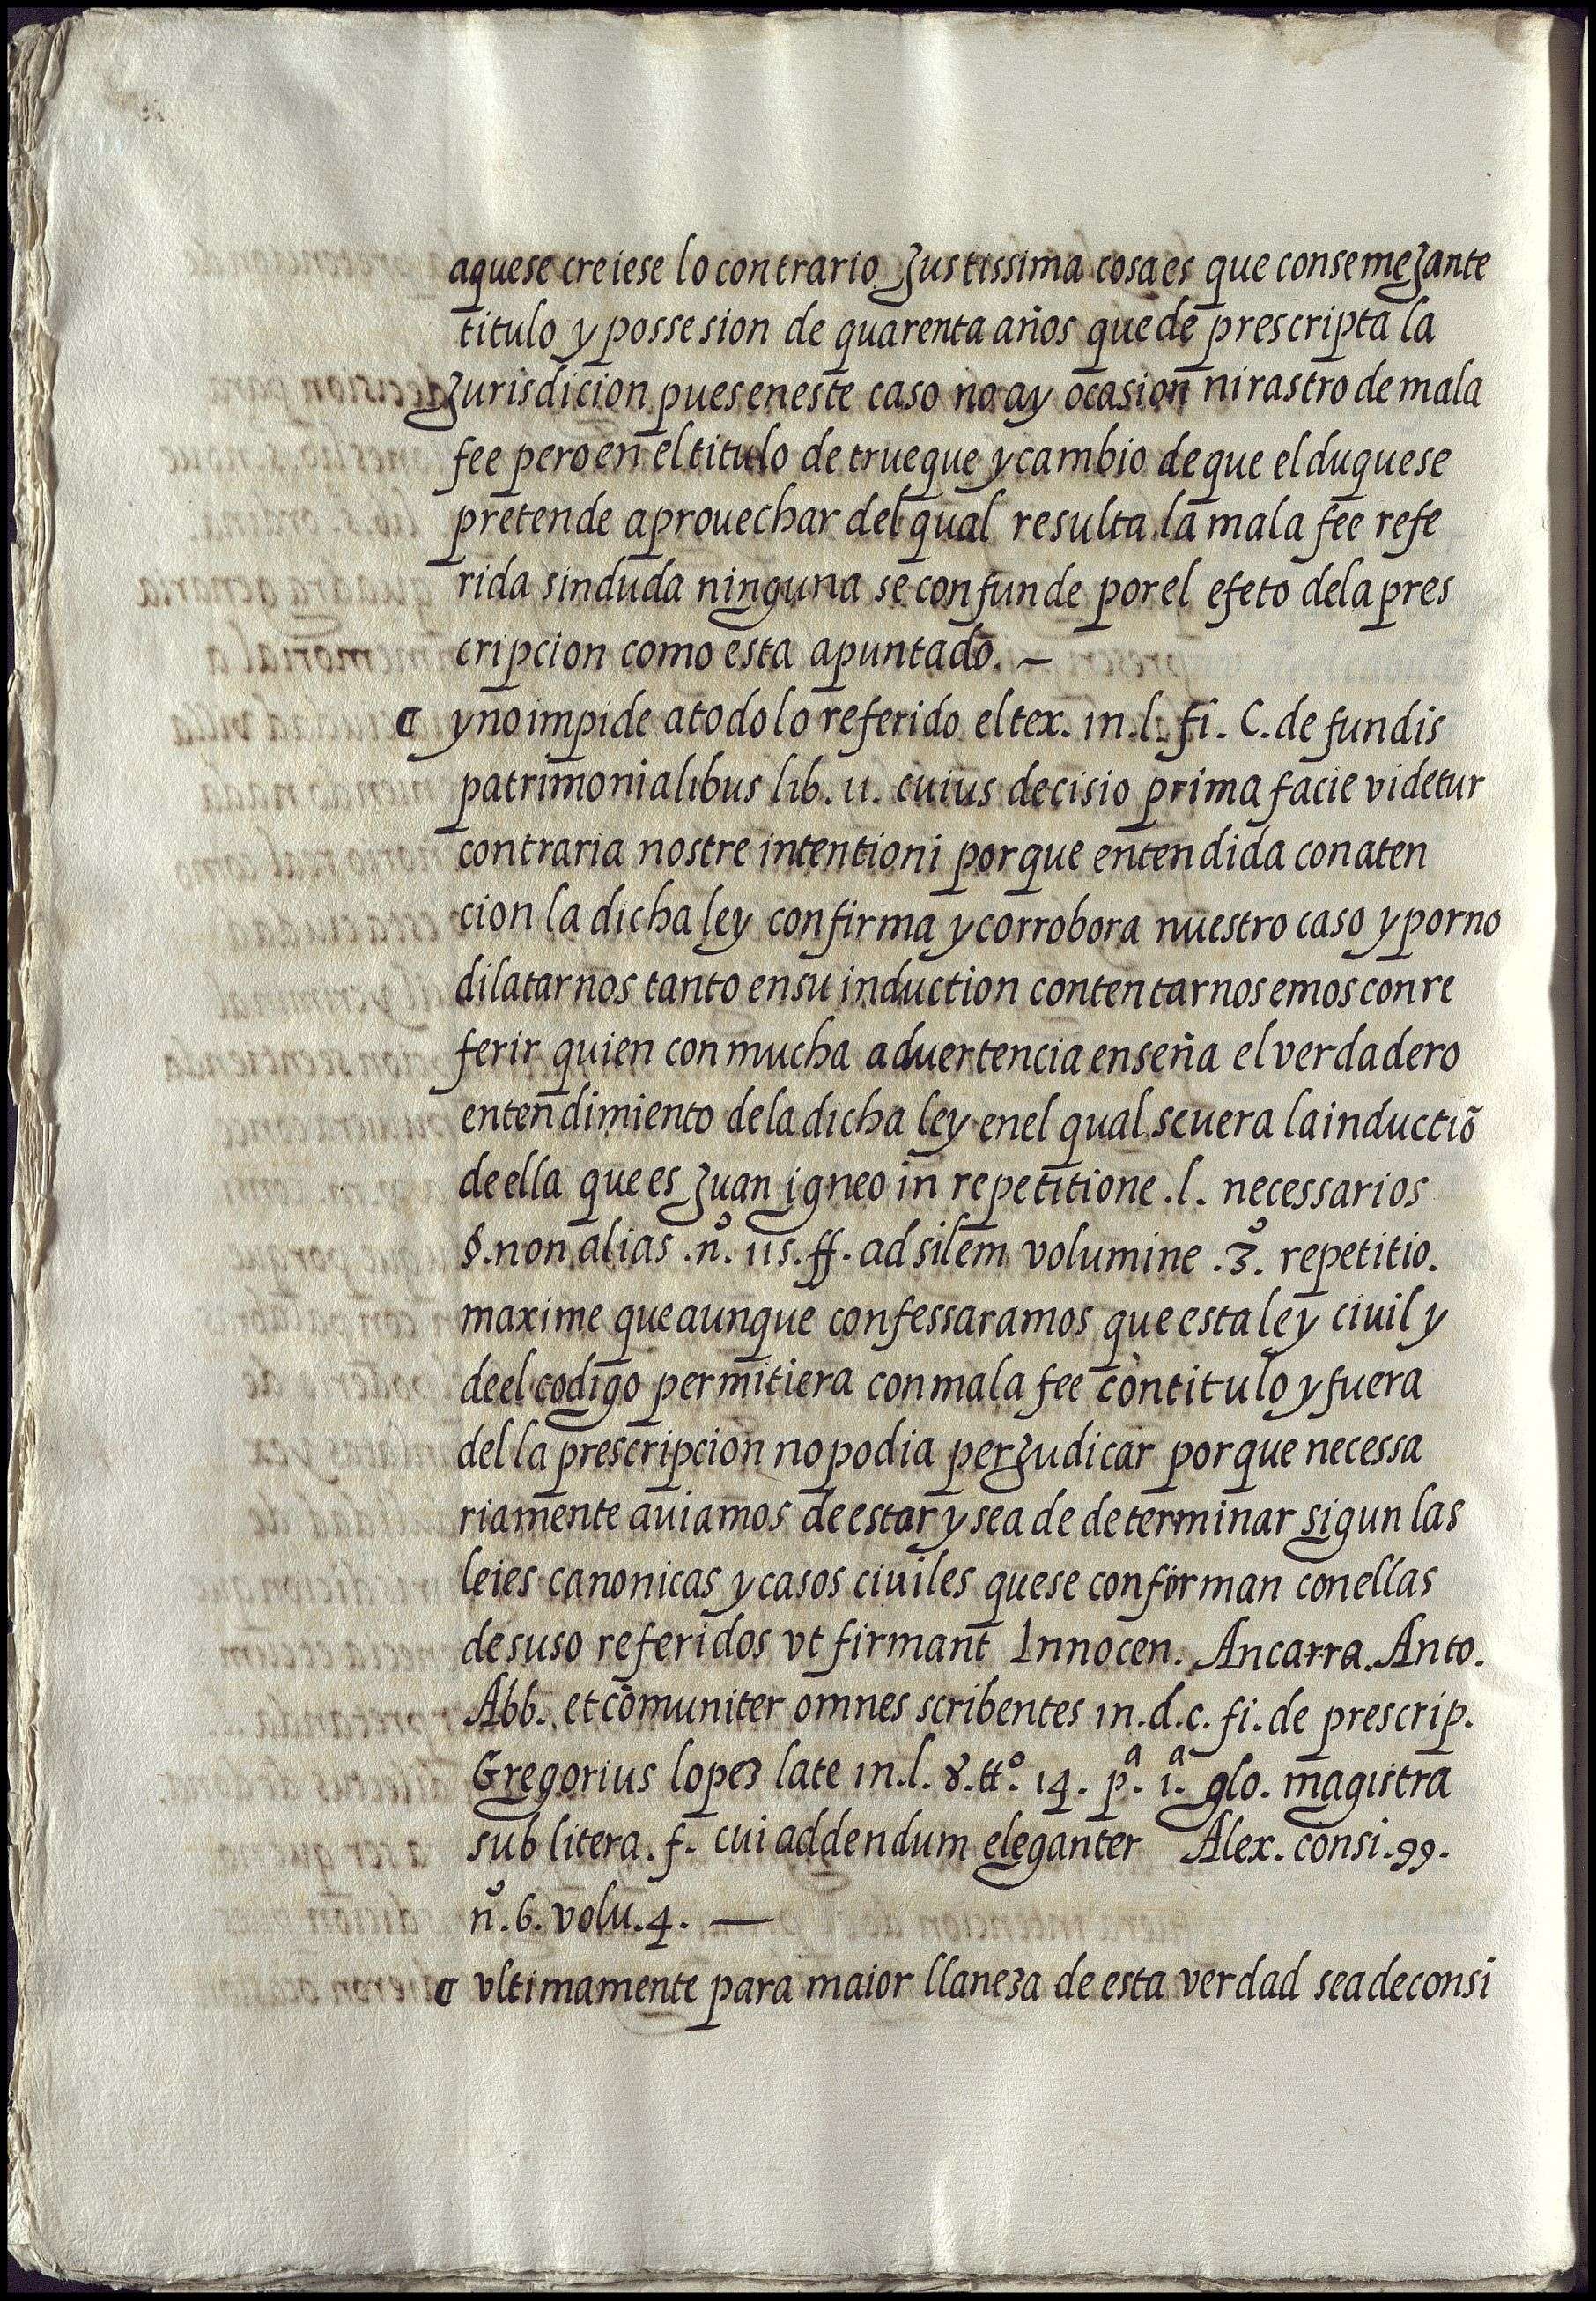 aquese creiese lo contrario Justissima cosa es que con semeJante
titulo y possesion de quarenta años quede prescripta la
Jurisdicion pues en este caso no ay ocasion ni rastro de mala
fee pero en el titulo de trueque y cambio de que el duque se
pretende aprouechar del qual resulta la mala fee refe
rida sin duda ninguna se confunde por el efeto de la pres
cripcion como esta apuntado. —
¶ y no impide a todo lo referido el tex. in. l. fi. C. de fundis
patrimonialibus lib. 11. cuius decisio prima facie videtur
contraria nostre intentioni porque entendida con aten
cion la dicha ley confirma y corrobora nuestro caso y por no
dilatarnos tanto en su induction contentarnos emos con re
ferir quien con mucha aduertencia enseña el verdadero
entendimiento de la dicha ley en el qual se uera la inductiõ
de ella que es Juan igneo in repetitione .l. necessarios
§. non alias .nº. 115. ff. ad silem volumine .3º. repetitio.
maxime que aunque confessaramos que esta ley ciuil y
de el codigo permitiera con mala fee con titulo y fuera
del la prescripcion no podia perJudicar porque necessa
riamente auiamos de estar y se a de determinar sigun las
leies canonicas y casos ciuiles que se conforman con ellas
de suso referidos vt firmant Innocen. Ancarra. Anto.
Abb. et cõmuniter omnes scribentes in. d. c. fi. de prescrip.
Gregorius lopez late in. l. 8. ttº. 14. pª. 1ª. glo. magistra
sub litera. f. cui addendum eleganter Alex. consi. 99.
nº. 6. volu. 4. —
¶ vltimamente para maior llaneza de esta verdad se a de consi